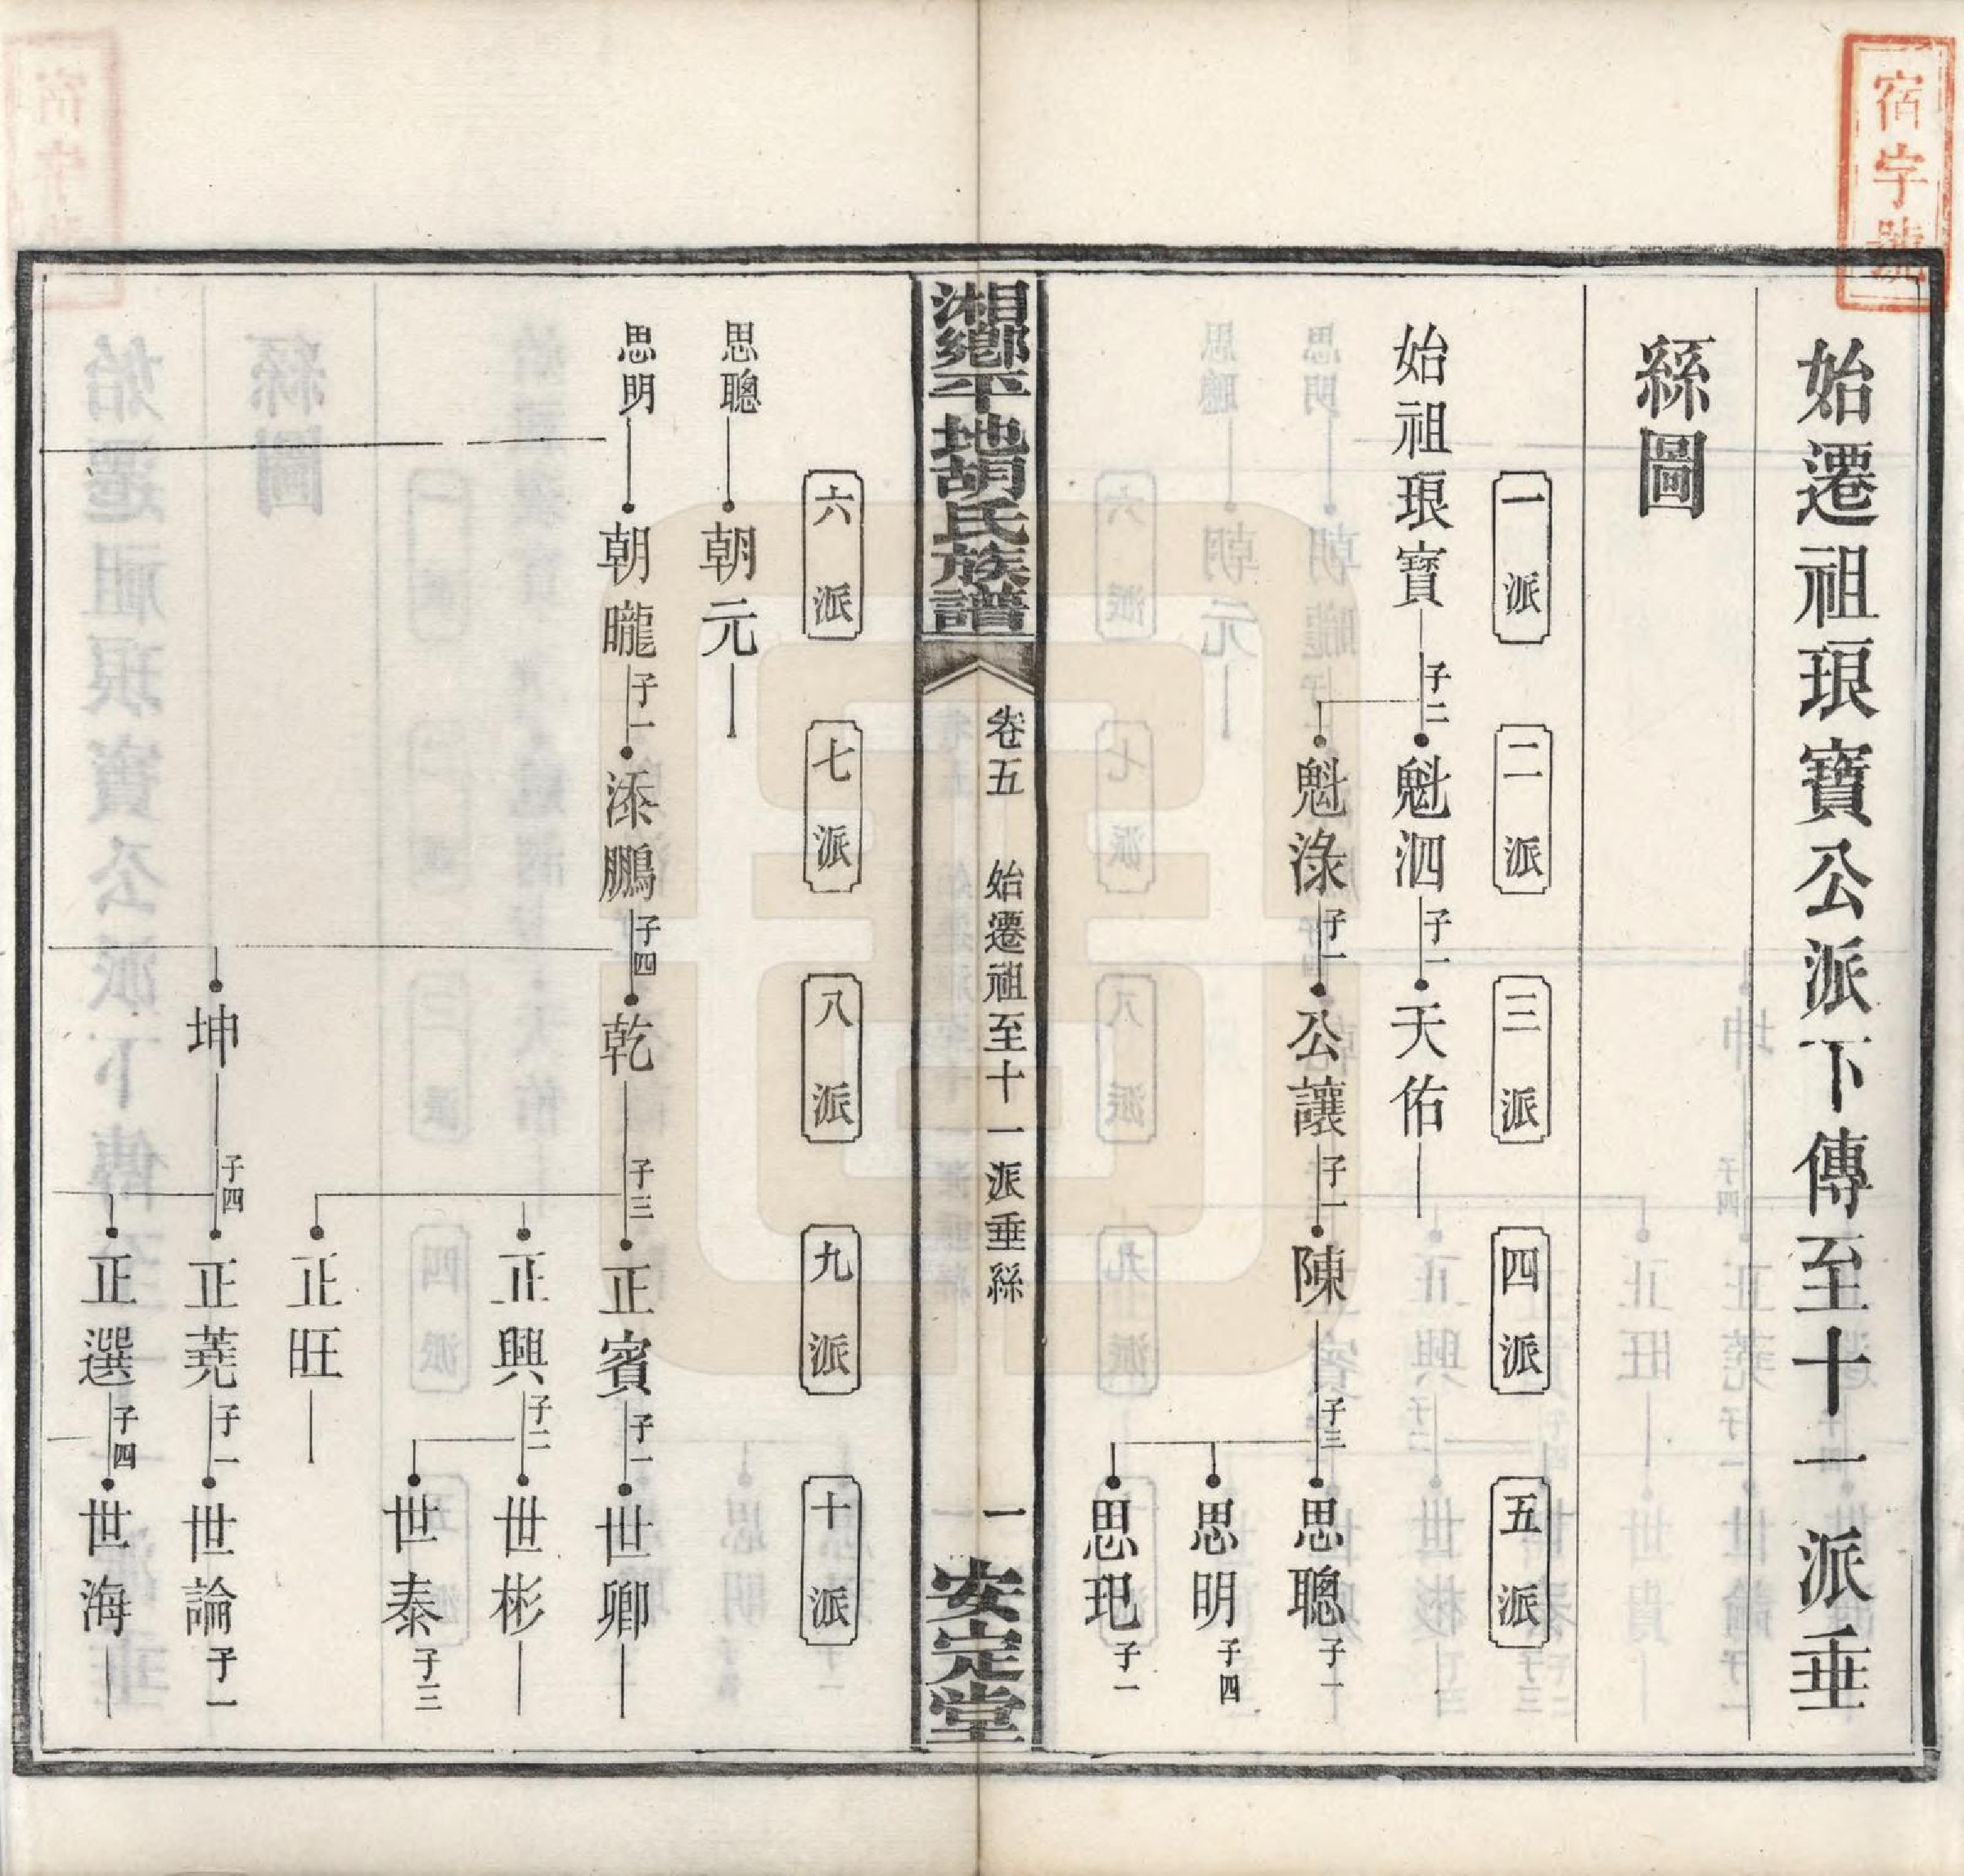 宿字號
始遷祖琅寶公派下傳至十一派垂
絲圖
一派
二派
三派
四派
五派
始祖琅寶
子二
魁泗
子一
天佑
魁淥
子一
公讓
子一
陳
子三
思聰
子一
思明
子四
思玘
子一
湘鄉平地胡氏族譜
卷五
始遷祖至十一派垂絲
一
安定堂
六派
七派
八派
九派
十派
思聰
朝元
思明
朝矓
子一
添鵬
子四
乾
子三
正賓
子一
世卿
正興
子二
世彬
世泰
子三
正旺
坤
子四
正蕘
子一
世論
子一
正選
子四
世海